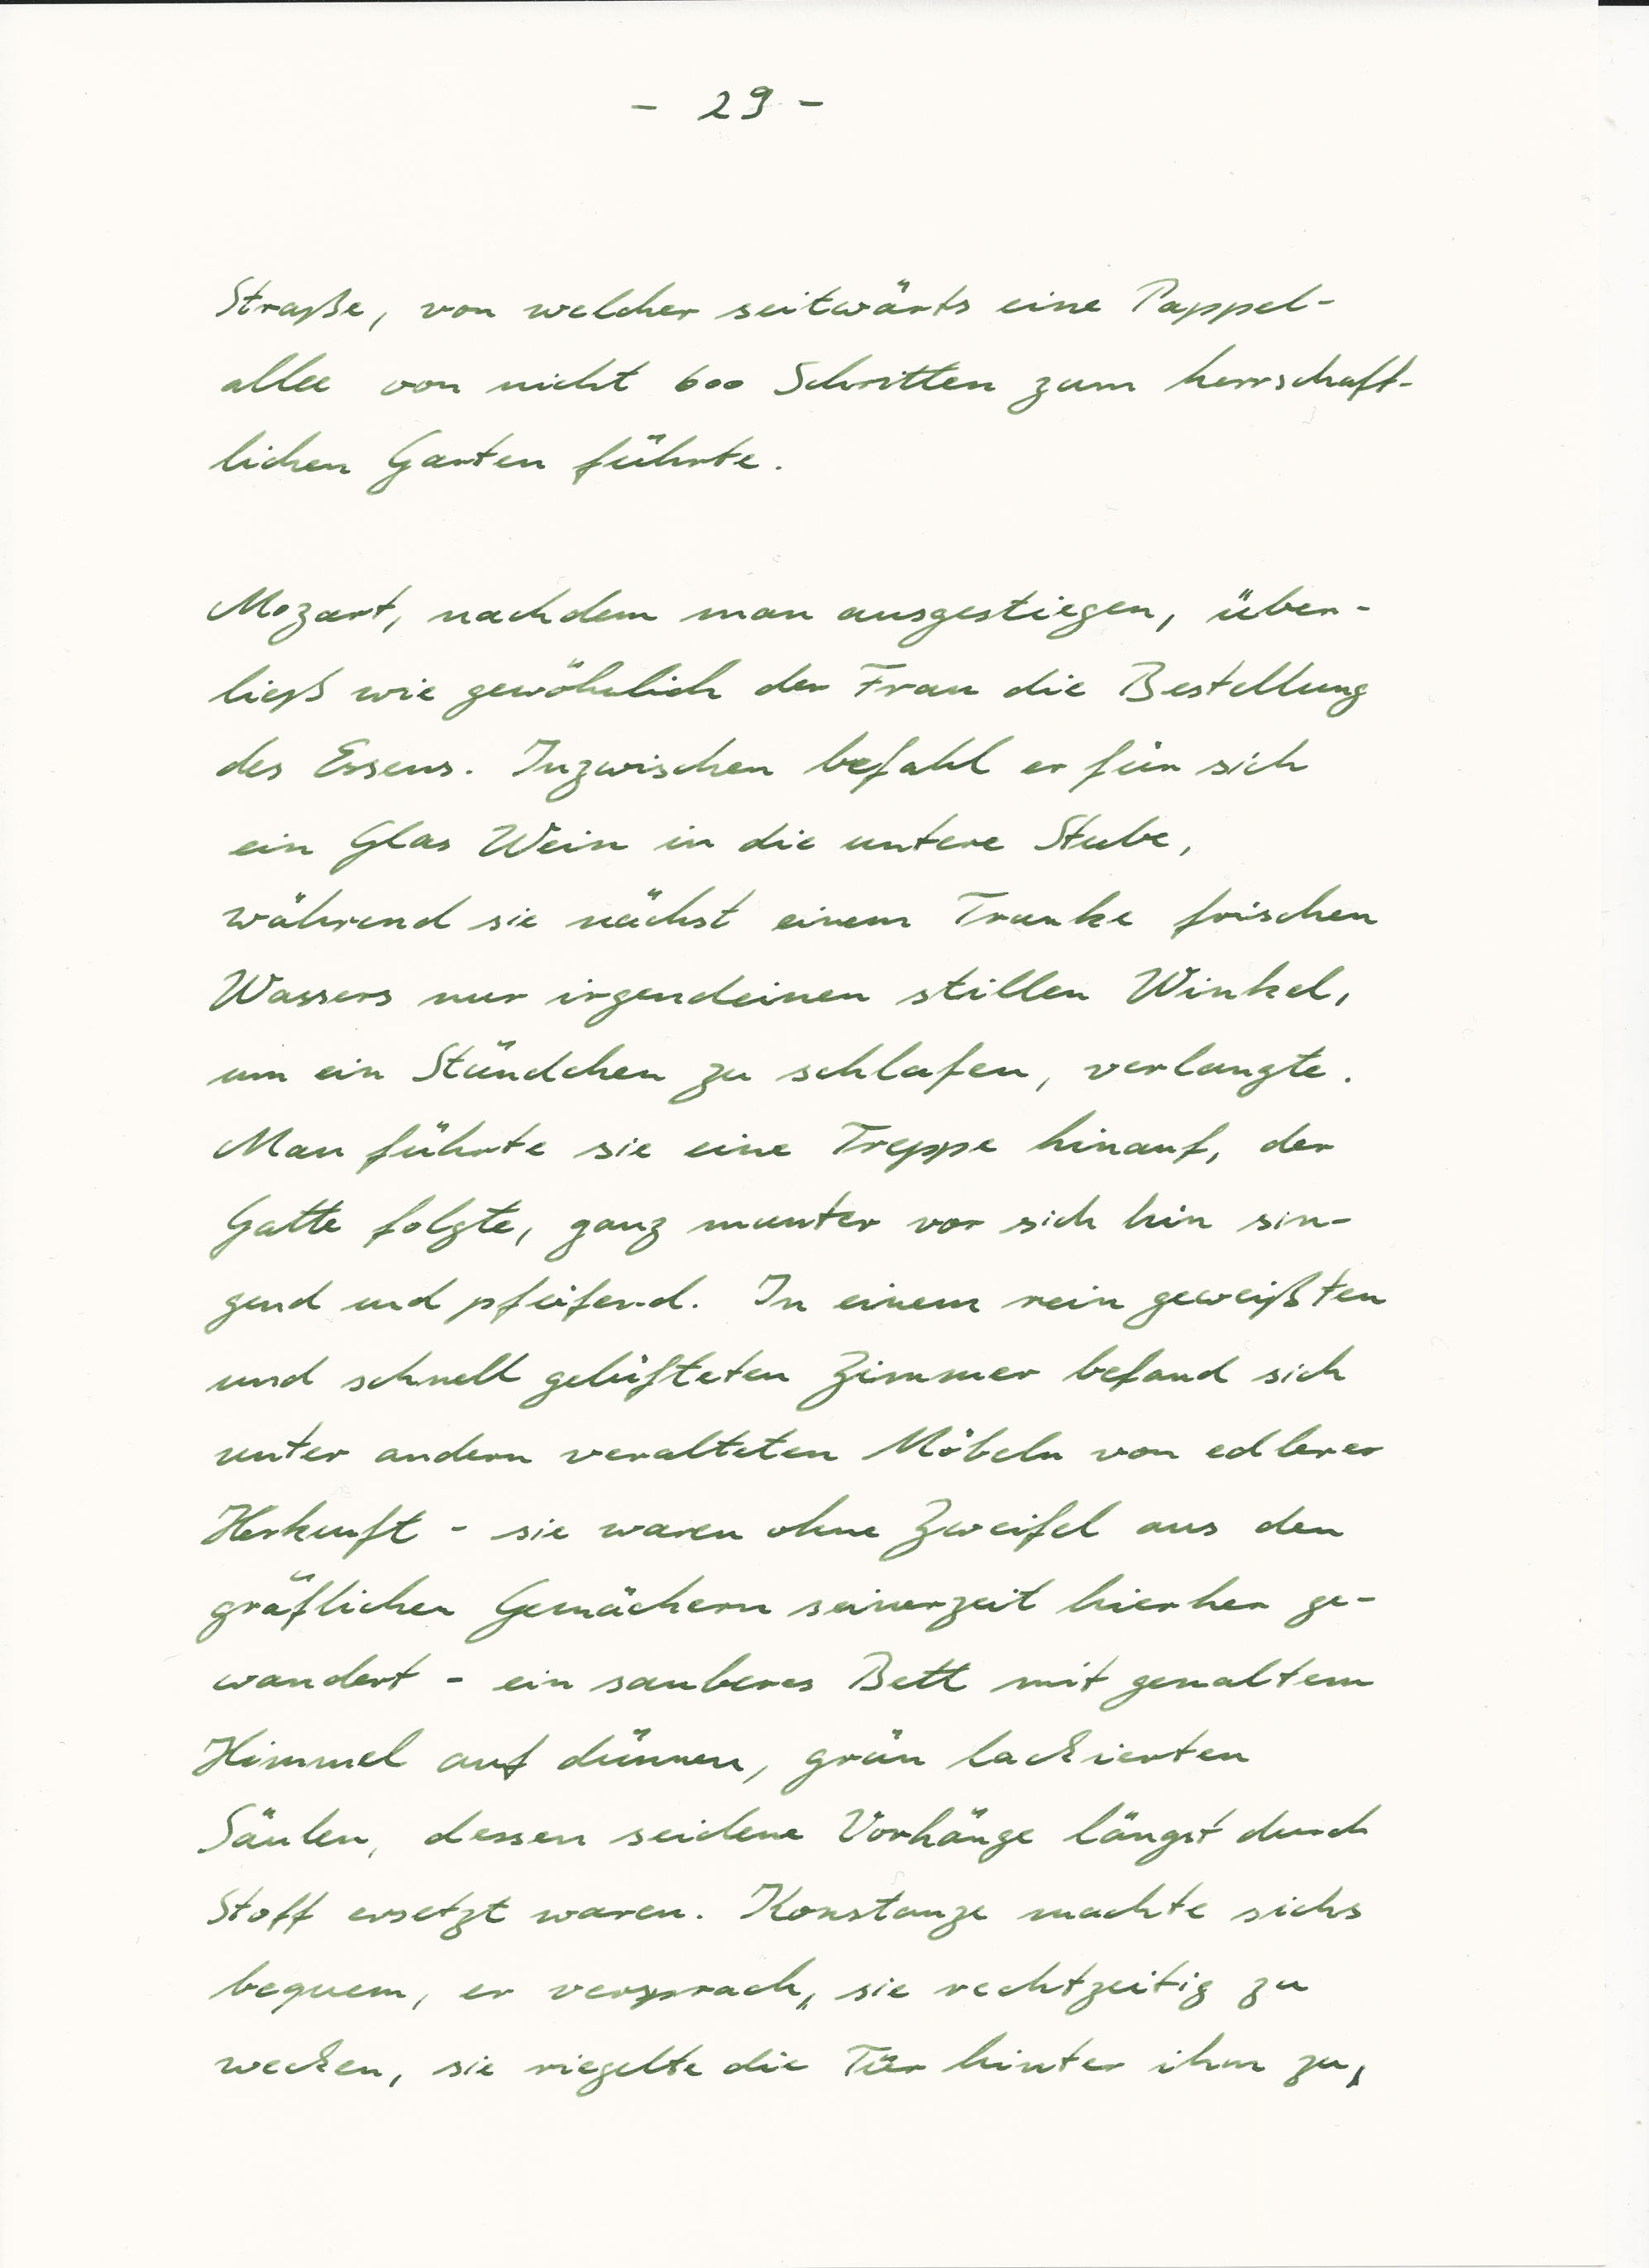 - 29 -
Straße, von welcher seitwärts eine Pappel-
allee von nicht 600 Schritten zum herrschaft-
lichen Garten führte.
Mozart, nachdem man ausgestiegen, über-
ließ wie gewöhnlich der Frau die Bestellung
des Essens. Inzwischen befahl er für sich
ein Glas Wein in die untere Stube,
während sie nächst einem Trunke frischen
Wassers nur irgendeinen stillen Winkel,
um ein Stündchen zu schlafen, verlangte.
Man führte sie eine Treppe hinauf, der
Gatte folgte, ganz munter vor sich hin sin-
gend und pfeifend. In einem rein geweißten
und schnell gelüfteten Zimmer befand sich
unter andern veralteten Möbeln von edlerer
Herkunft - sie waren ohne Zweifel aus den
gräflichen Gemächern seinerzeit hierher ge-
wandert - ein sauberes Bett mit gemaltem
Himmel auf dünnen, grün lackierten
Säulen, dessen seidene Vorhänge längst durch
Stoff ersetzt waren. Konstanze machte sichs
bequem, er versprach, sie rechtzeitig zu
wecken, sie riegelte die Tür hinter ihm zu,